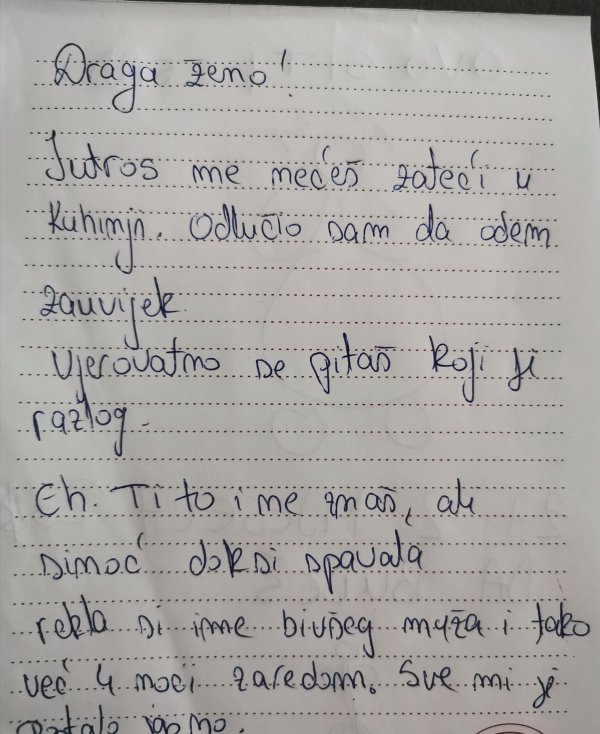 Draga ženo!
Jutros me nećeš zateći u
kuhinji. Odlučio sam da odem
zauvijek.
Vjerovatno se pitaš koji je
razlog.
Eh. Ti to i ne znaš, ali
sinoć dok si spavala
rekla si ime bivšeg muža i tako
već 4 noći zaredom. Sve mi je
postalo jasno.